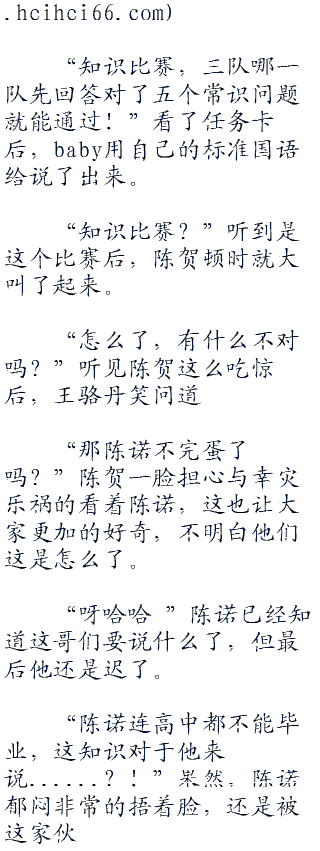 .hcihci66.com)
“知识比赛，三队哪一
队先回答对了五个常识问题
就能通过！”看了任务卡
后，baby用自己的标准国语
给说了出来。
“知识比赛？”听到是
这个比赛后，陈贺顿时就大
叫了起来。
“怎么了，有什么不对
吗？”听见陈贺这么吃惊
后，王骆丹笑问道
“那陈诺不完蛋了
吗？”陈贺一脸担心与幸灾
乐祸的看着陈诺，这也让大
家更加的好奇，不明白他们
这是怎么了。
“呀哈哈 ”陈诺已经知
道这哥们要说什么了，但最
后他还是迟了。
“陈诺连高中都不能毕
业，这知识对于他来
说......？！”果然，陈诺
郁闷非常的捂着脸，还是被
这家伙